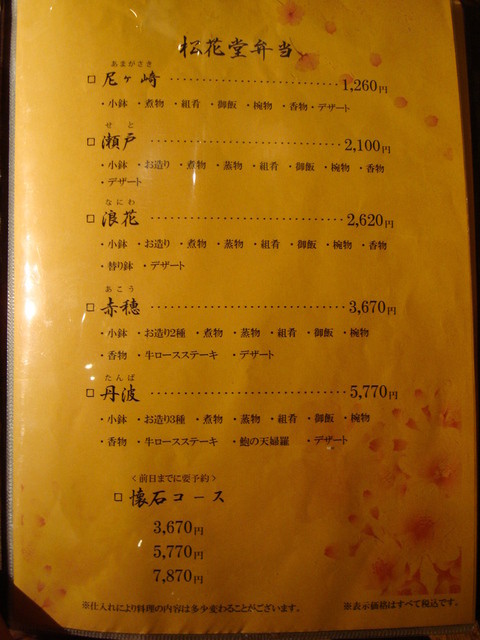 松花堂弁当
あまがさき
□ 尼ヶ崎 ‥‥‥‥‥‥‥‥‥‥ 1,260円
・小鉢 ・煮物 ・組肴 ・御飯 ・椀物 ・香物・デザート
せと
□ 瀬戸 ‥‥‥‥‥‥‥‥‥‥ 2,100円
・小鉢 ・お造り ・煮物 ・蒸物 ・組肴 ・御飯 ・椀物 ・香物
・デザート
なにわ
□ 浪花 ‥‥‥‥‥‥‥‥‥‥ 2,620円
・小鉢 ・お造り ・煮物 ・蒸物 ・組肴 ・御飯 ・椀物 ・香物
・替り鉢 ・デザート
あこう
□ 赤穂 ‥‥‥‥‥‥‥‥‥‥ 3,670円
・小鉢 ・お造り2種 ・煮物 ・蒸物 ・組肴 ・御飯 ・椀物
・香物 ・牛ロースステーキ ・デザート
たんば
□ 丹波 ‥‥‥‥‥‥‥‥‥‥ 5,770円
・小鉢 ・お造り3種 ・煮物 ・蒸物 ・組肴 ・御飯 ・椀物
・香物 ・牛ロースステーキ ・鮑の天婦羅 ・デザート
<前日までに要予約>
□ 懐石コース
3,670円
5,770円
7,870円
※仕入れにより料理の内容は多少変わることがございます。 ※表示価格はすべて税込です。